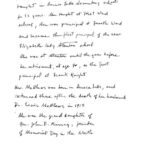 taught in Santa Fe's elementary school
for 13 years. She taught at West Ward
school, then was principal at Fourth Ward
and became the first principal of the new
Elizabeth Lally Atherton school
She was at Atherton until the year before
her retirement, at age 70, as the first
principal at Frank Knight
Mrs. Matthews was born in Seneca Falls, and
returned there after the death of her husband
Dr. Lewis Matthews in 1913
She was the grand daughter of
Gen. John B. Murray, founder
of Memorial Day in the North